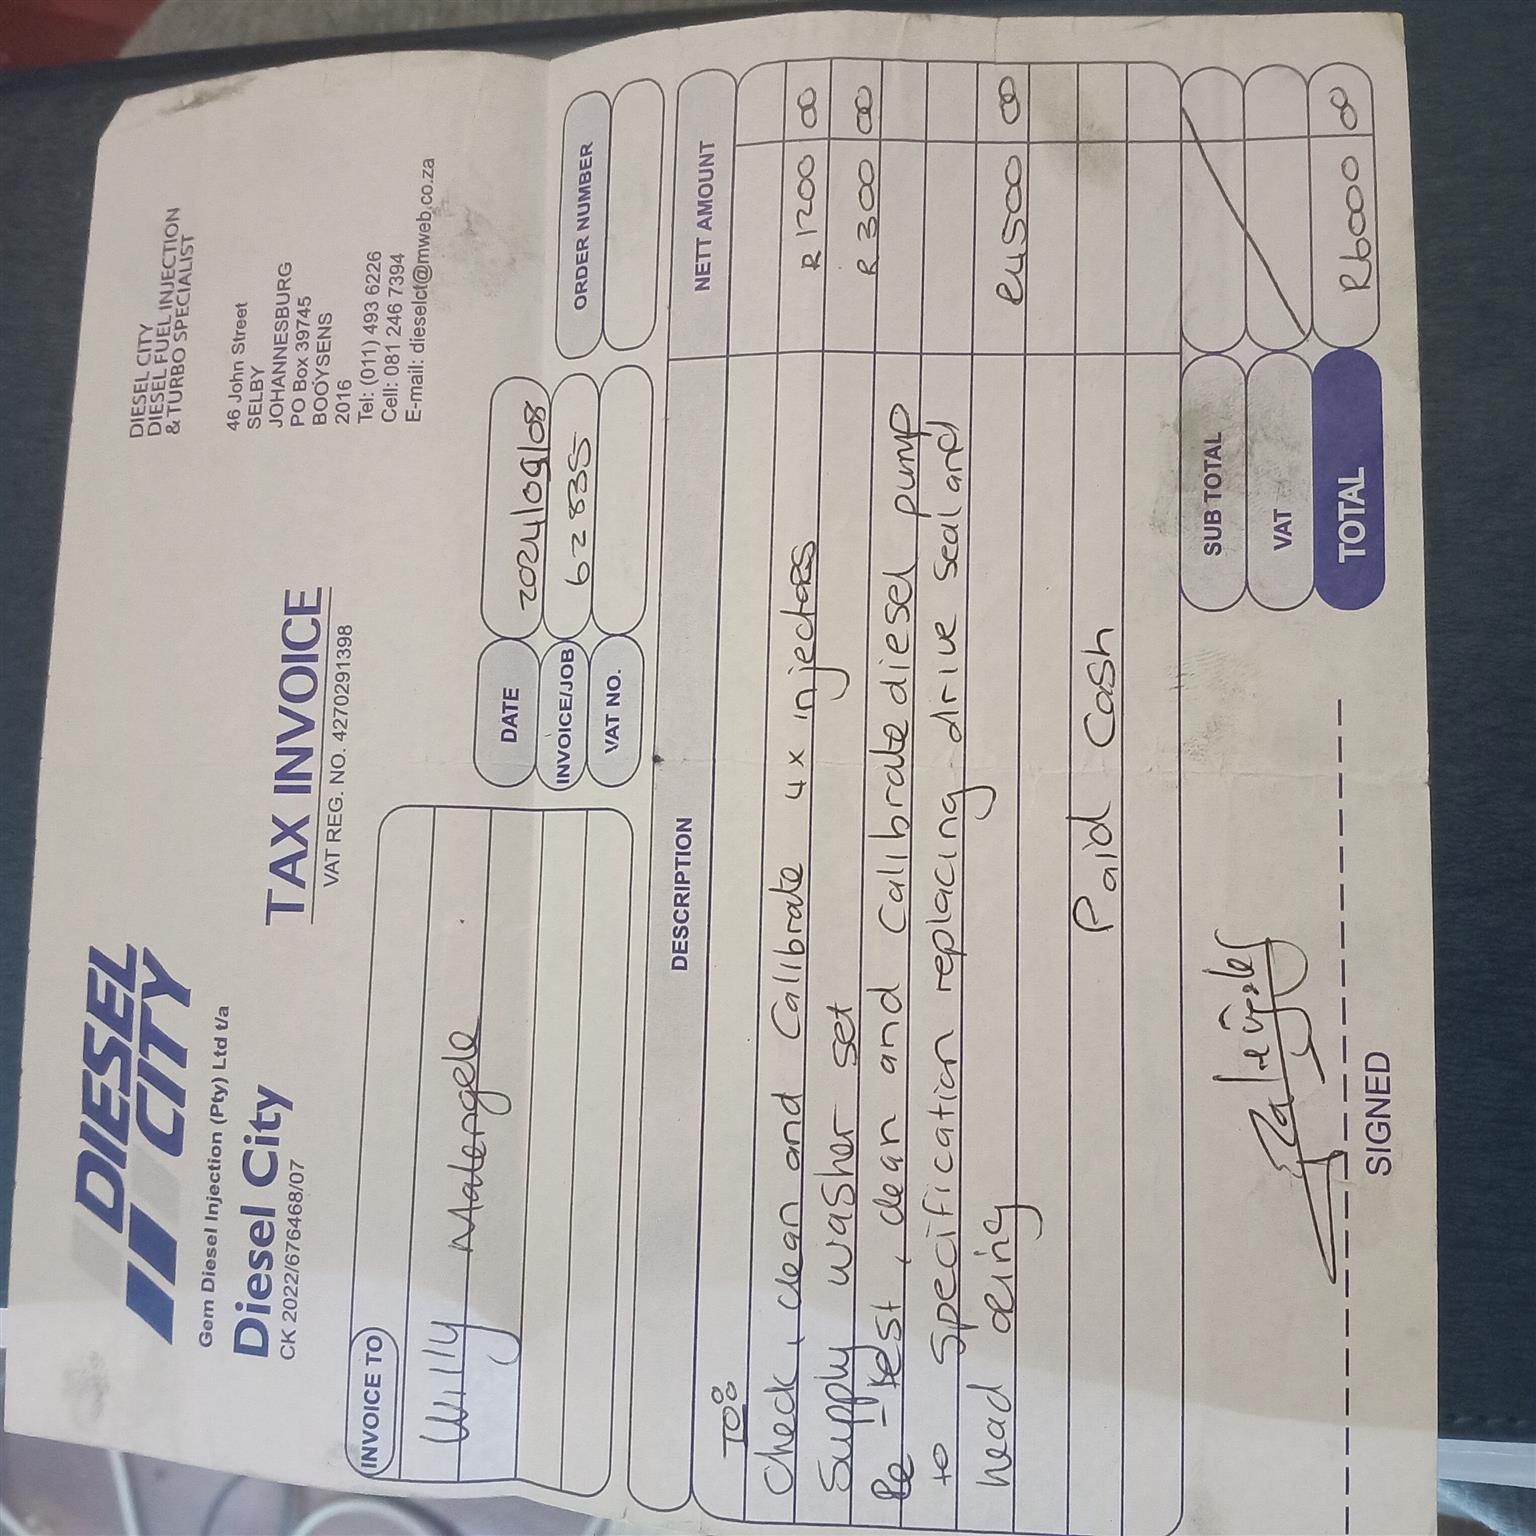 DIESEL
CITY
Gem Diesel Injection (Pty) Ltd t/a
Diesel City
CK 2022/676468/07
DIESEL CITY
DIESEL FUEL INJECTION
& TURBO SPECIALIST
46 John Street
SELBY
JOHANNESBURG
PO Box 39745
BOOYSENS
2016
Tel: (011) 493 6226
Cell: 081 246 7394
E-mail: dieselct@mweb.co.za
TAX INVOICE
VAT REG. NO. 4270291398
INVOICE TO
Willy Malengele
DATE 2024/09/08
INVOICE/JOB 62835
VAT NO.
ORDER NUMBER
DESCRIPTION NETT AMOUNT
TO:
Check, clean and Calibrate 4x injectors R1200 00
Supply washer set R300 00
Re-test, clean and Calibrate diesel pump
to specification replacing drive seal and
head oring R4500 00
Paid Cash
SUB TOTAL
VAT
TOTAL R6000 00
SIGNED